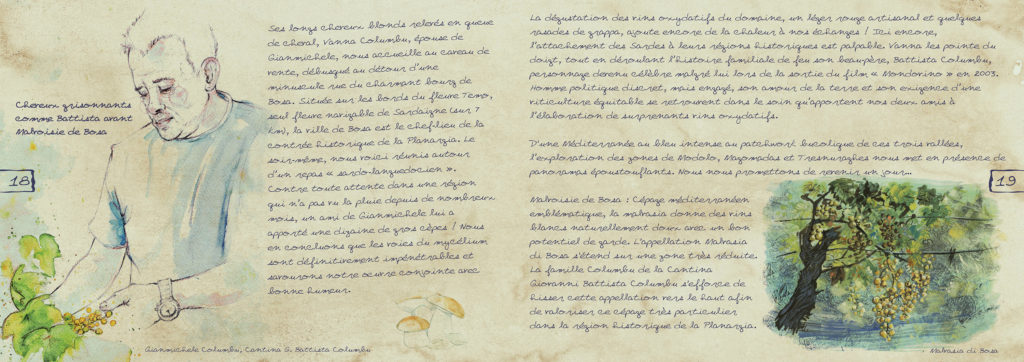 Cheveux grisonnants
comme Battista avant
Malvoisie de Bosa
18
Ses longs cheveux blonds relevés en queue
de cheval, Vanna Columbu, épouse de
Gianmichele, nous accueille au caveau de
vente, débusqué au détour d'une
minuscule rue du charmant bourg de
Bosa. Située sur les bords du fleuve Temo,
seul fleuve navigable de Sardaigne (sur 7
km), la ville de Bosa est le chef-lieu de la
contrée historique de la Planargia. Le
soir-même, nous voici réunis autour
d'un repas « sardo-languedocien ».
Contre toute attente dans une région
qui n'a pas vu la pluie depuis de nombreux
mois, un ami de Gianmichele lui a
apporté une dizaine de gros cèpes ! Nous
en concluons que les voies du mycélium
sont définitivement impénétrables et
savourons notre oeuvre conjointe avec
bonne humeur.
Gianmichele Columbu, Cantina G. Battista Columbu
La dégustation des vins oxydatifs du domaine, un léger rouge artisanal et quelques
rasades de grappa, ajoute encore de la chaleur à nos échanges ! Ici encore,
l'attachement des Sardes à leurs régions historiques est palpable. Vanna les pointe du
doigt, tout en déroulant l'histoire familiale de feu son beau-père, Battista Columbu,
personnage devenu célèbre malgré lui lors de la sortie du film « Mondovino » en 2003.
Homme politique discret, mais engagé, son amour de la terre et son exigence d'une
viticulture équitable se retrouvent dans le soin qu'apportent nos deux amis à
l'élaboration de surprenants vins oxydatifs.
D'une Méditerranée au bleu intense au patchwork bucolique de ces trois vallées,
l'exploration des zones de Modolo, Magomadas et Tresnuraghes nous met en présence de
panoramas époustouflants. Nous nous promettons de revenir un jour...
19
Malvoisie de Bosa : Cépage méditerranéen
emblématique, la malvasia donne des vins
blancs naturellement doux avec un bon
potentiel de garde. L'appellation Malvasia
di Bosa s'étend sur une zone très réduite.
La famille Columbu de la Cantina
Giovanni Battista Columbu s'efforce de
hisser cette appellation vers le haut afin
de valoriser ce cépage très particulier
dans la région historique de la Planargia.
Malvasia di Bosa